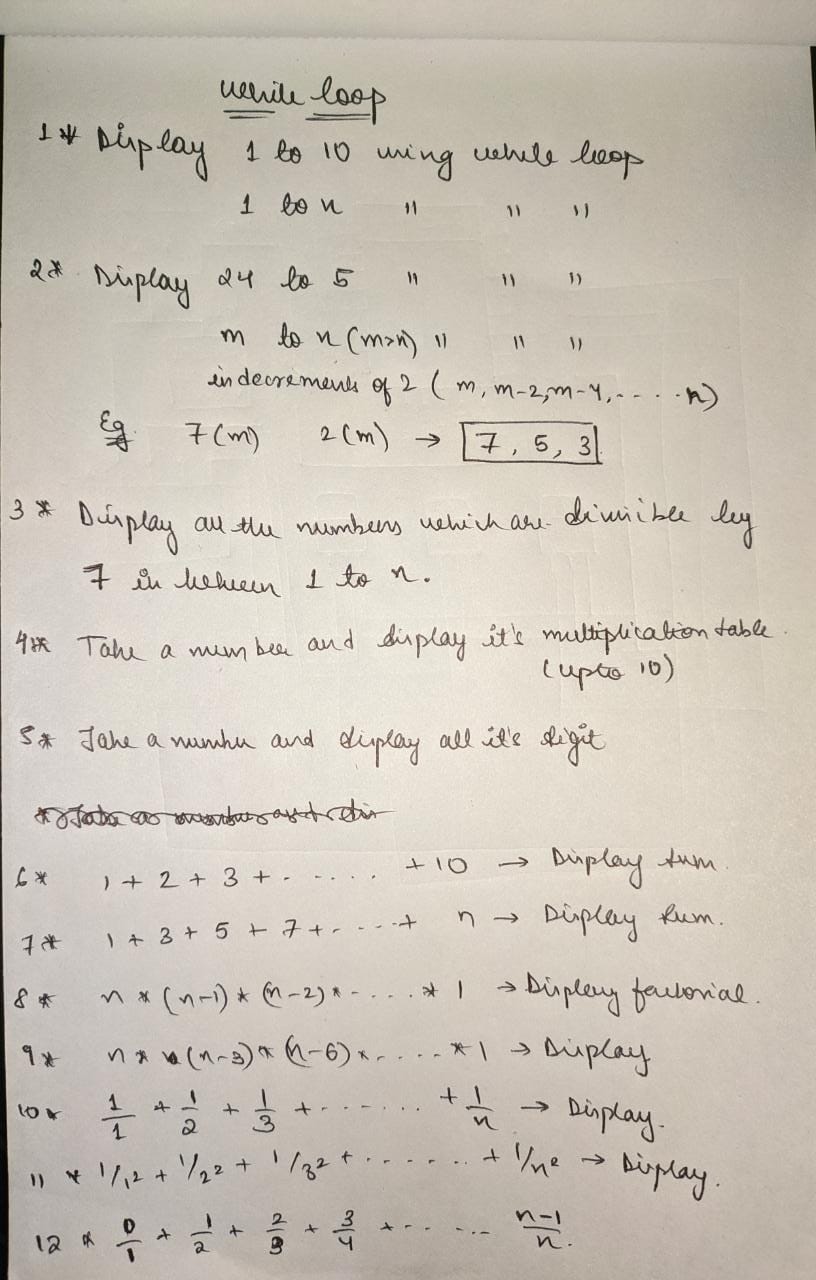 while loop
1* Display 1 to 10 using while loop
1 to n " " "
2* Display 24 to 5 " " "
m to n (m>n) " " "
in decrements of 2 ( m, m-2, m-4, - - - - n)
Eg 7(m) 2(m) → 7, 5, 3
3* Display all the numbers which are divisible by
7 in between 1 to n.
4* Take a number and display it's multiplication table.
(upto 10)
5* Take a number and display all it's digit
6* 1 + 2 + 3 + - ..... + 10 → Display sum.
7* 1 + 3 + 5 + 7 + - ...- + n → Display sum.
8* n * (n-1) * (n-2) * - .... * 1 → Display factorial.
9* n * (n-3) * (n-6) * - .... * 1 → Display
10* 1/1 + 1/2 + 1/3 + ....... + 1/n → Display.
11 * 1/1² + 1/2² + 1/3² + ....... + 1/n² → Display.
12 * 0/1 + 1/2 + 2/3 + 3/4 + - .. ... n-1/n.